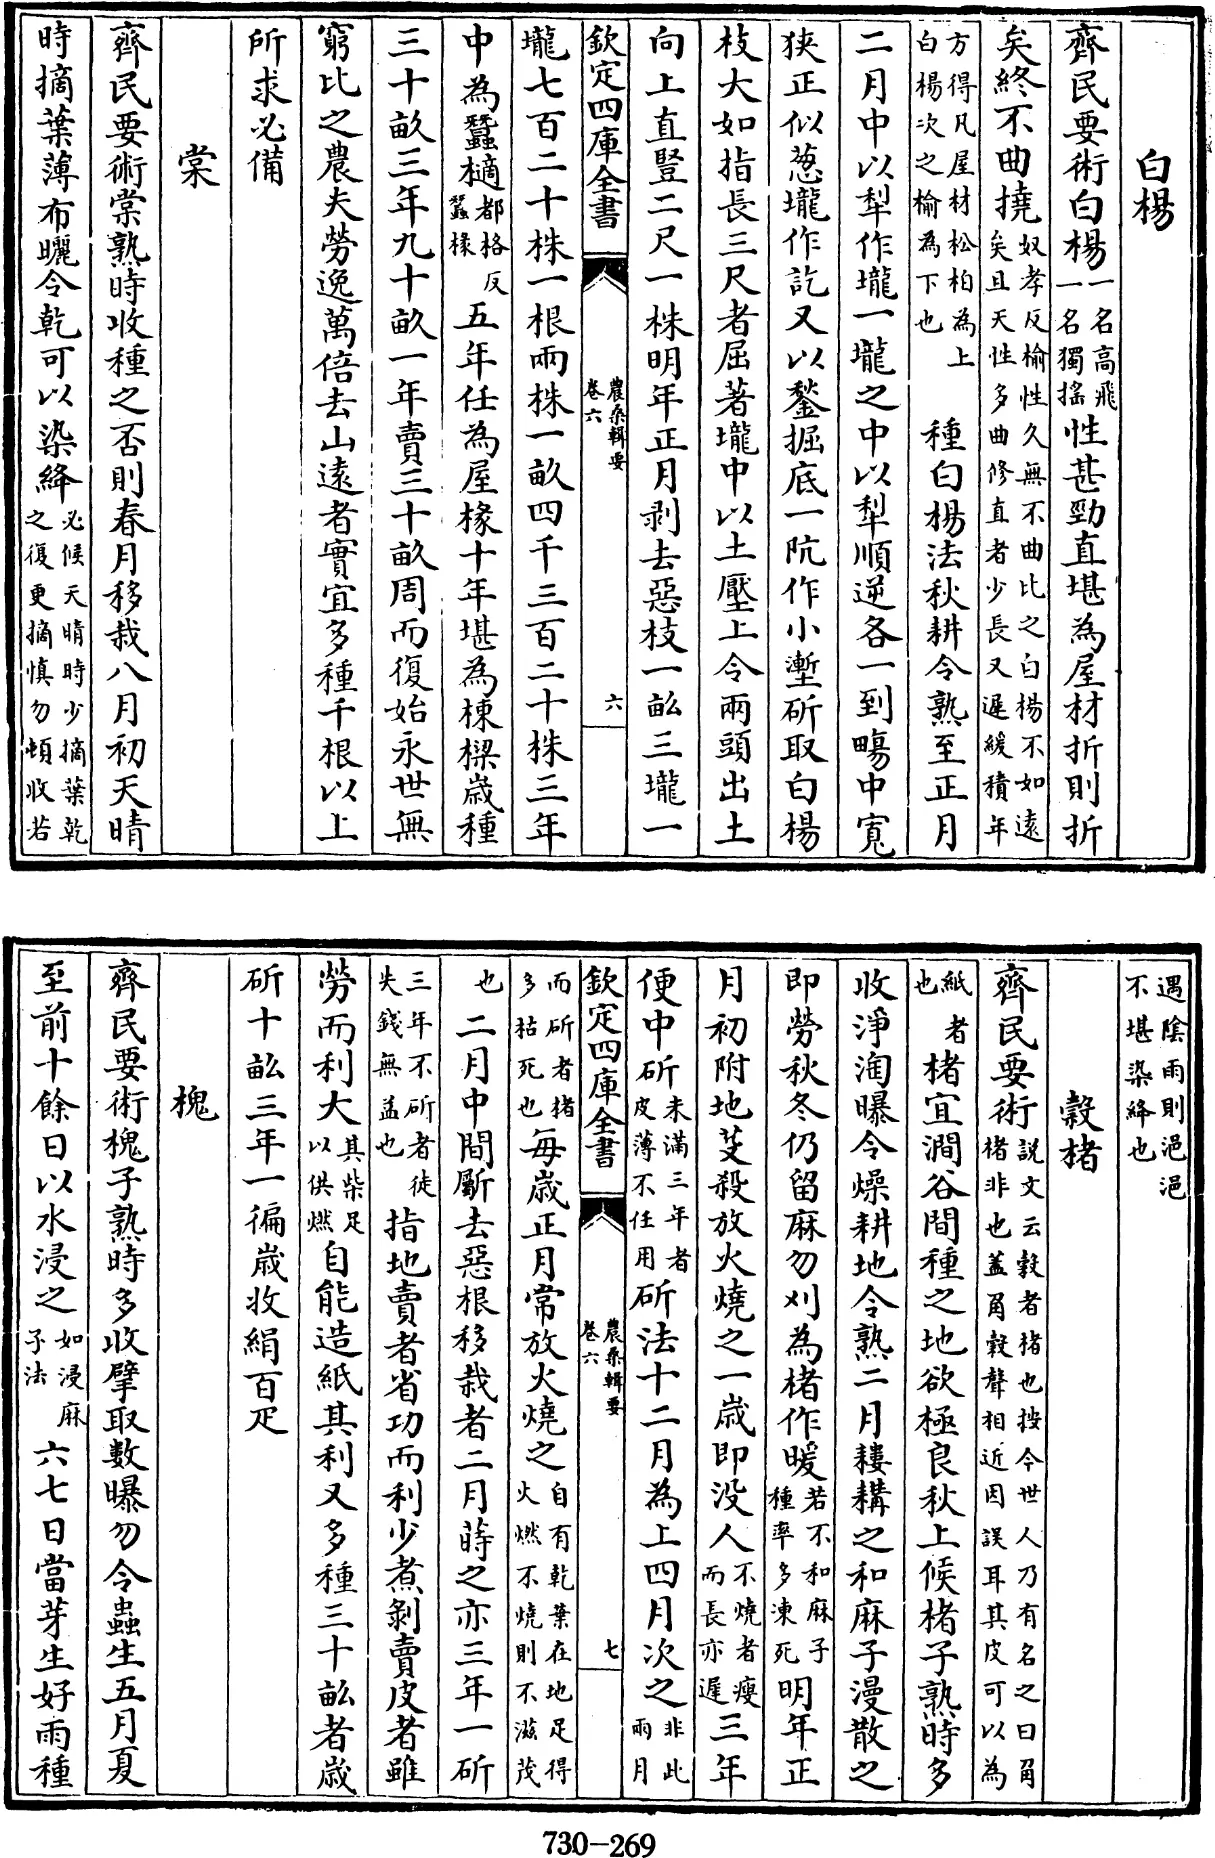 白楊
齊民要術白楊一名高飛一名獨揺性甚勁直堪為屋材折則折
矣終不曲撓奴孝反榆性久無不曲比之白楊不如逺矣且天性多曲修直者少長又遲緩積年
方得凡屋材松柏為上白楊次之榆為下也種白楊法秋耕令熟至正月
二月中以犁作壠一壠之中以犁順逆各一到㽪中寛
狹正似葱壠作訖又以鍫掘底一阬作小壍斫取白楊
枝大如指長三尺者屈著壠中以土壓上令兩頭出土
向上直豎二尺一株明年正月剥去惡枝一畝三壠一
欽定四庫全書
農桑輯要
卷六
六
壠七百二十株一根兩株一畝四千三百二十株三年
中為蠶樀都格反蠶椽五年任為屋椽十年堪為棟樑歳種
三十畝三年九十畝一年賣三十畝周而復始永世無
窮比之農夫勞逸萬倍去山逺者實宜多種千根以上
所求必備
棠
齊民要術棠熟時收種之否則春月移栽八月初天晴
時摘葉薄布曬令乾可以染絳必候天晴時少摘葉乾之復更摘慎勿頓收若
遇陰雨則浥浥不堪染絳也
穀楮
齊民要術説文云穀者楮也按今世人乃有名之曰角楮非也葢角穀聲相近因誤耳其皮可以為
紙者也楮宜澗谷間種之地欲極良秋上候楮子熟時多
收淨淘曝令燥耕地令熟二月耬耩之和麻子漫散之
即勞秋冬仍留麻勿刈為楮作暖若不和麻子種率多凍死明年正
月初附地芟殺放火燒之一歳即没人不燒者瘦而長亦遲三年
便中斫未滿三年者皮薄不任用斫法十二月為上四月次之非此兩月
欽定四庫全書
農桑輯要
卷六
七
而斫者楮多枯死也毎歳正月常放火燒之自有乾葉在地足得火燃不燒則不滋茂
也二月中間斸去惡根移栽者二月蒔之亦三年一斫
三年不斫者徒失錢無益也指地賣者省功而利少煮剝賣皮者雖
勞而利大其柴足以供燃自能造紙其利又多種三十畝者歳
斫十畝三年一徧歳收絹百疋
槐
齊民要術槐子熟時多收擘取數曝勿令蟲生五月夏
至前十餘日以水浸之如浸麻子法六七日當芽生好雨種
730-269